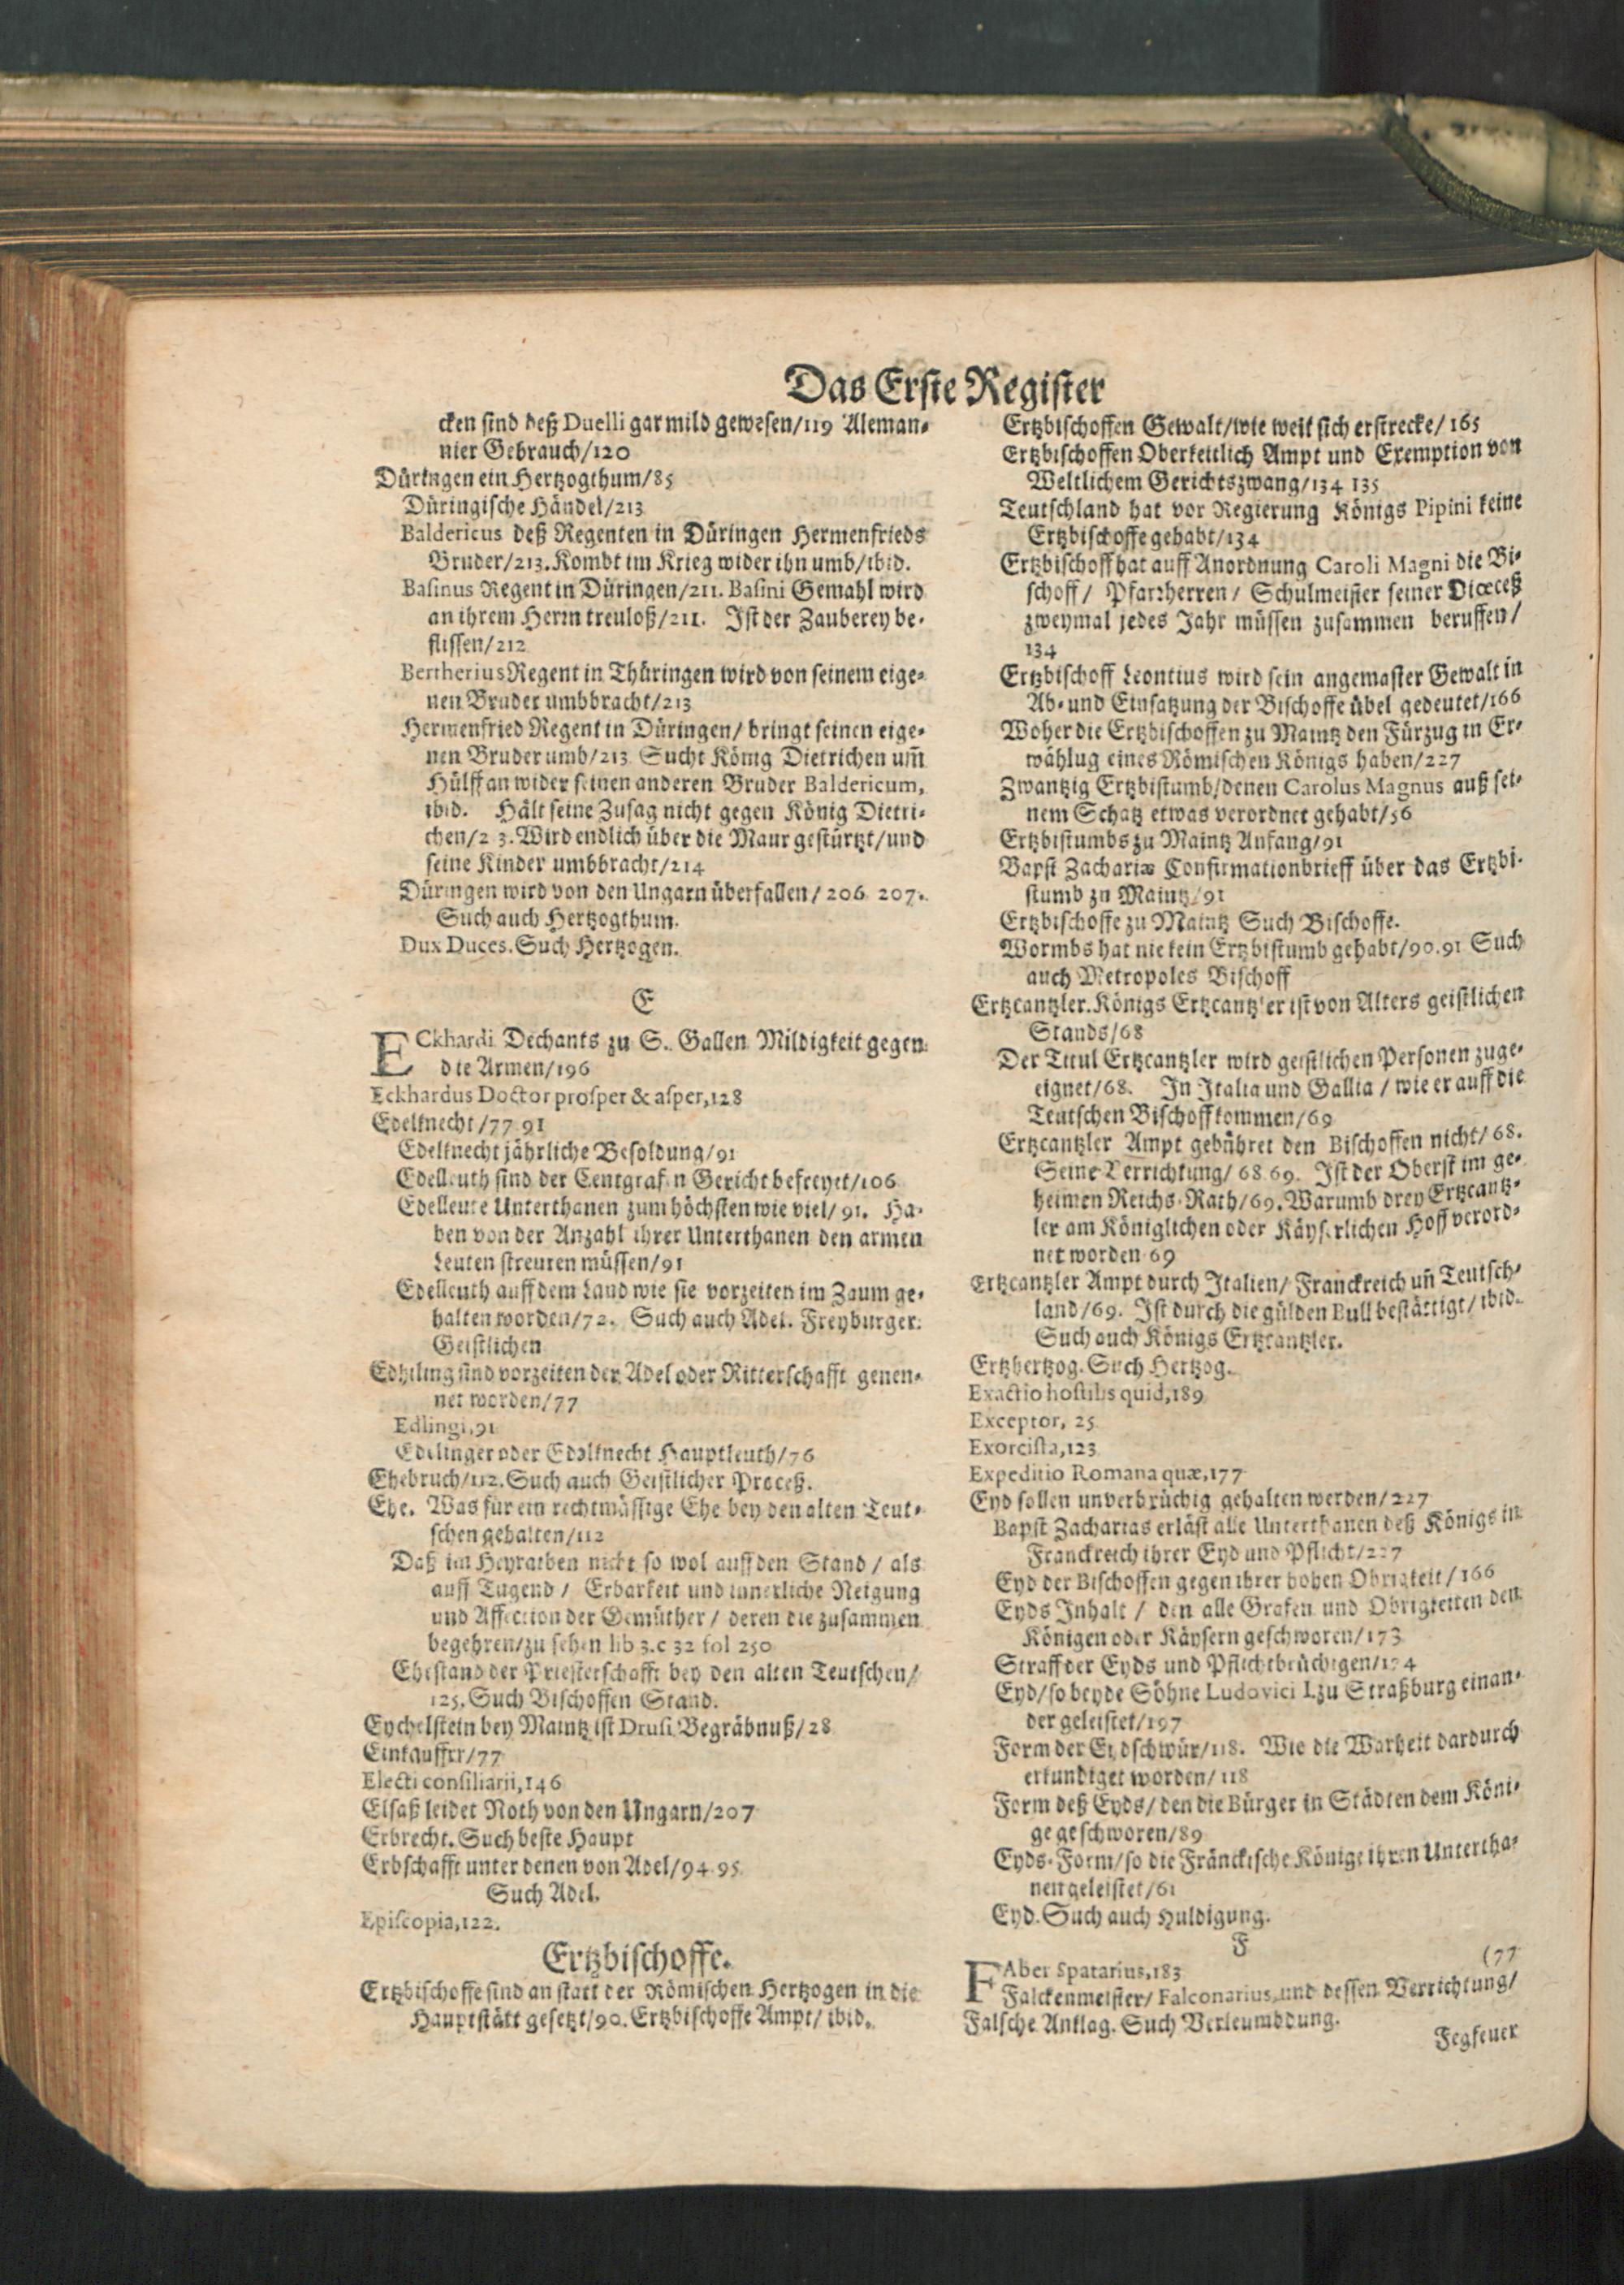 Das Erste Register
cken sind deß Duelli gar mild gewesen/119 Aleman-
nier Gebrauch/120
Düringen ein Hertzogthum/85
Düringische Händel/213
Baldericus deß Regenten in Düringen Hermenfrieds
Bruder/213. Kombt im Krieg wider ihn umb/ibid.
Basinus Regent in Düringen/211. Basini Gemahl wird
an ihrem Herrn treuloß/211. Ist der Zauberey be-
flissen/212
Bertherius Regent in Thüringen wird von seinem eige-
nen Bruder umbbracht/213
Hermenfried Regent in Düringen/ bringt seinen eige-
nen Bruder umb/213 Sucht König Dietrichen uñ
Hülff an wider seinen anderen Bruder Baldericum,
ibid. Hält seine Zusag nicht gegen König Dietri-
chen/2 3. Wird endlich über die Maur gestürtzt/und
seine Kinder umbbracht/214
Düringen wird von den Ungarn überfallen/206 207.
Such auch Hertzogthum.
Dux Duces. Such Hertzogen.
E
ECkhardi Dechants zu S. Gallen Mildigkeit gegen
die Armen/196
Eckhardus Doctor prosper & asper, 128
Edelknecht/77 91
Edelknecht jährliche Besoldung/91
Edelleuth sind der Centgrafen Gericht befreyet/106
Edelleute Unterthanen zum höchsten wie viel/91. Ha-
ben von der Anzahl ihrer Unterthanen den armen
Leuten streuren müssen/91
Edelleuth auff dem Land wie sie vorzeiten im Zaum ge-
halten worden/72. Such auch Adel. Freyburger.
Geistlichen
Edhiling sind vorzeiten der Adel oder Ritterschafft genen-
net worden/77
Edlingi, 91
Edelinger oder Edelknecht Hauptleuth/76
Ehebruch/112. Such auch Geistlicher Proceß.
Ehe. Was für ein rechtmässige Ehe bey den alten Teut-
schen gehalten/112
Daß im Heyrathen nicht so wol auff den Stand/ als
auff Tugend/ Erbarkeit und innerliche Neigung
und Affection der Gemüther/ deren die zusammen
begehren/zu sehen lib 3. c 32 fol 250
Ehestand der Priesterschafft bey den alten Teutschen/
125. Such Bischoffen Stand.
Eychelstein bey Maintz ist Drusi Begräbnuß/28
Einkauffer/77
Electi consiliarii, 146
Elsaß leidet Noth von den Ungarn/207
Erbrecht. Such beste Haupt
Erbschafft unter denen von Adel/94 95
Such Adel.
Episcopia, 122.
Ertzbischoffe.
Ertzbischoffe sind an statt der Römischen Hertzogen in die
Hauptstätt gesetzt/90. Ertzbischoffe Ampt/ ibid.
Ertzbischoffen Gewalt/wie weit sich erstrecke/165
Ertzbischoffen Oberkeitlich Ampt und Exemption von
Weltlichem Gerichtszwang/134 135
Teutschland hat vor Regierung Königs Pipini keine
Ertzbischoffe gehabt/134
Ertzbischoff hat auff Anordnung Caroli Magni die Bi-
schoff/ Pfarrherren/ Schulmeister seiner Diœceß
zweymal jedes Jahr müssen zusammen beruffen/
134
Ertzbischoff Leontius wird sein angemaster Gewalt in
Ab- und Einsatzung der Bischoffe übel gedeutet/166
Woher die Ertzbischoffen zu Maintz den Fürzug in Er-
wählug eines Römischen Königs haben/227
Zwantzig Ertzbistumb/denen Carolus Magnus auß sei-
nem Schatz etwas verordnet gehabt/56
Ertzbistumbs zu Maintz Anfang/91
Bapst Zachariæ Confirmationbrieff über das Ertzbi-
stumb zu Maintz/91
Ertzbischoffe zu Maintz Such Bischoffe.
Wormbs hat nie kein Ertzbistumb gehabt/90.91 Such
auch Metropoles Bischoff
Ertzcantzler. Königs Ertzcantzler ist von Alters geistlichen
Stands/68
Der Titul Ertzcantzler wird geistlichen Personen zuge-
eignet/68. In Italia und Gallia/ wie er auff die
Teutschen Bischoff kommen/69
Ertzcantzler Ampt gebühret den Bischoffen nicht/68.
Seine Verrichtung/68 69. Ist der Oberst im ge-
heimen Reichs-Rath/69. Warumb drey Ertzcantz-
ler am Königlichen oder Käyserlichen Hoff verord-
net worden 69
Ertzcantzler Ampt durch Italien/ Franckreich uñ Teutsch-
land/69. Ist durch die gülden Bull bestättigt/ ibid.
Such auch Königs Ertzcantzler.
Ertzhertzog. Such Hertzog.
Exactio hostilis quid, 189
Exceptor, 25
Exorcista, 123
Expeditio Romana quæ, 177
Eyd sollen unverbrüchig gehalten werden/227
Bapst Zacharias erläst alle Unterthanen deß Königs in
Franckreich ihrer Eyd und Pflicht/227
Eyd der Bischoffen gegen ihrer hohen Obrigkeit/166
Eyds Inhalt/ den alle Grafen und Obrigkeiten den
Königen oder Käysern geschworen/173
Straff der Eyds und Pflichtbrüchigen/174
Eyd/so beyde Söhne Ludovici I. zu Straßburg einan-
der geleistet/197
Form der Eydschwür/118. Wie die Warheit dardurch
erkundiget worden/118
Form deß Eyds/den die Bürger in Städten dem Köni-
ge geschworen/89
Eyds-Form/so die Fränckische Könige ihren Untertha-
nen geleistet/61
Eyd. Such auch Huldigung.
F
FAber Spatarius, 183
(77
Falckenmeister/ Falconarius, und dessen Verrichtung/
Falsche Anklag. Such Verleumbdung.
Fegfeuer